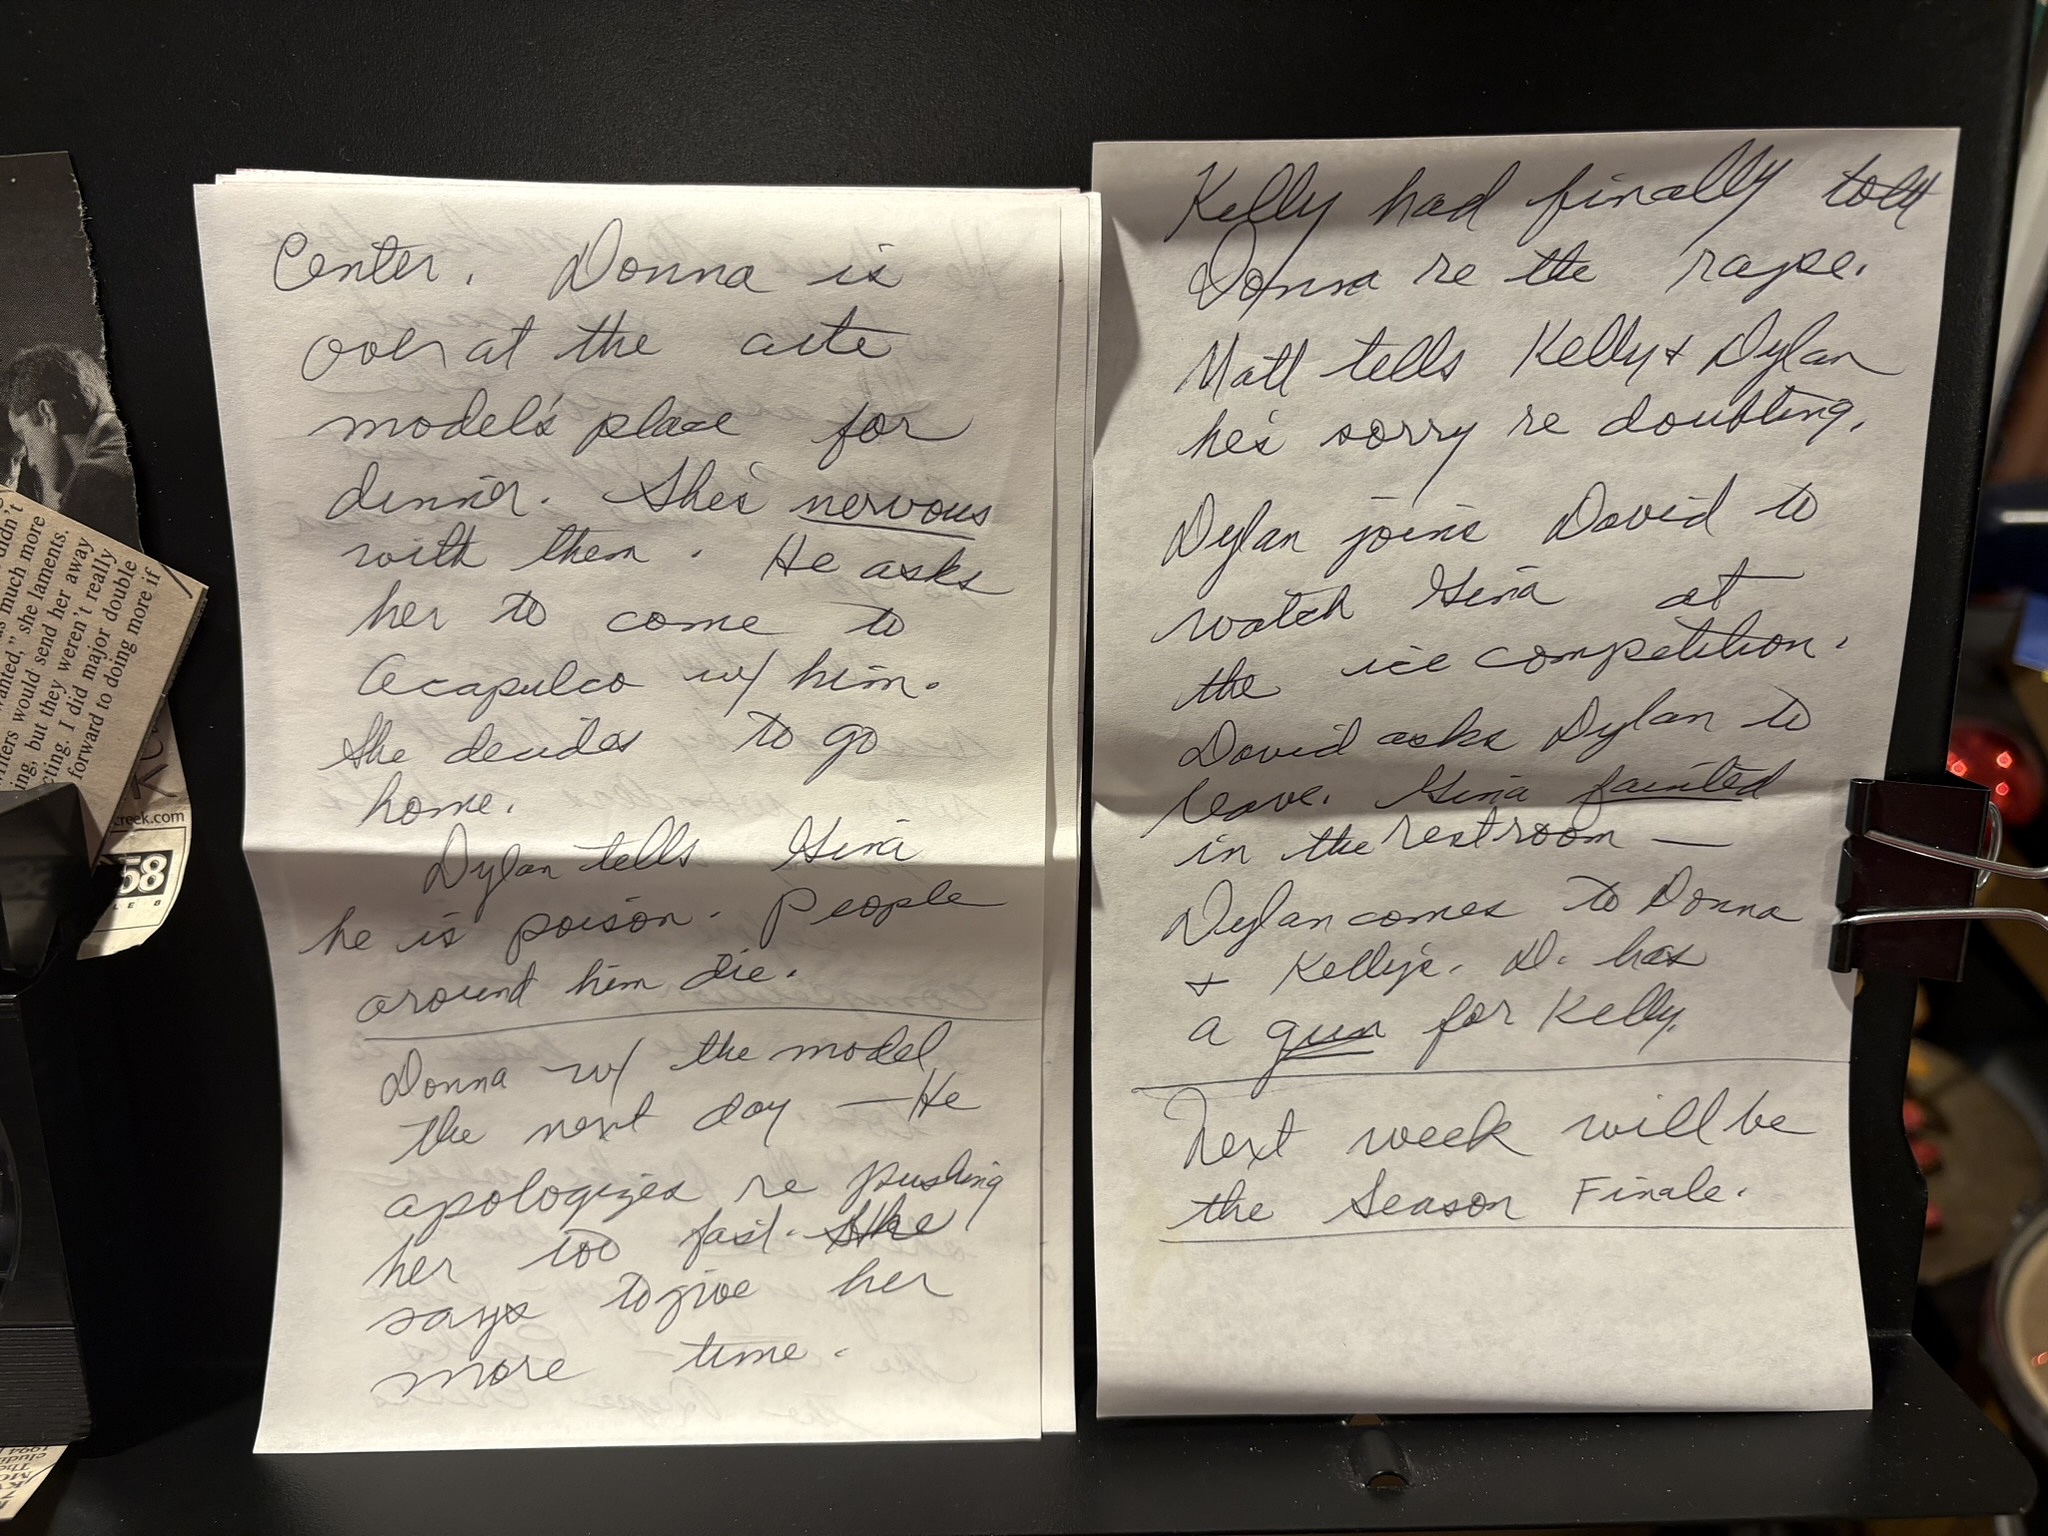 Center. Donna is
over at the arte
model's place for
dinner. She's nervous
with them. He asks
her to come to
Acapulco w/ him.
She decides to go
home.
Dylan tells Gina
he is poison. People
around him die.
Donna w/ the model
the next day — He
apologizes re pushing
her too fast. She
says to give her
more time.
Kelly had finally told
Donna re the rape.
Matt tells Kelly + Dylan
he's sorry re doubting.
Dylan joins David to
watch Gina at
the ice competition.
David asks Dylan to
leave. Gina fainted
in the restroom —
Dylan comes to Donna
+ Kelly's. D. has
a gun for Kelly.
Next week will be
the Season Finale.
didn't
as much more
wanted," she laments.
writers would send her away
ing, but they weren't really
cting. I did major double
forward to doing more if
creek.com
58